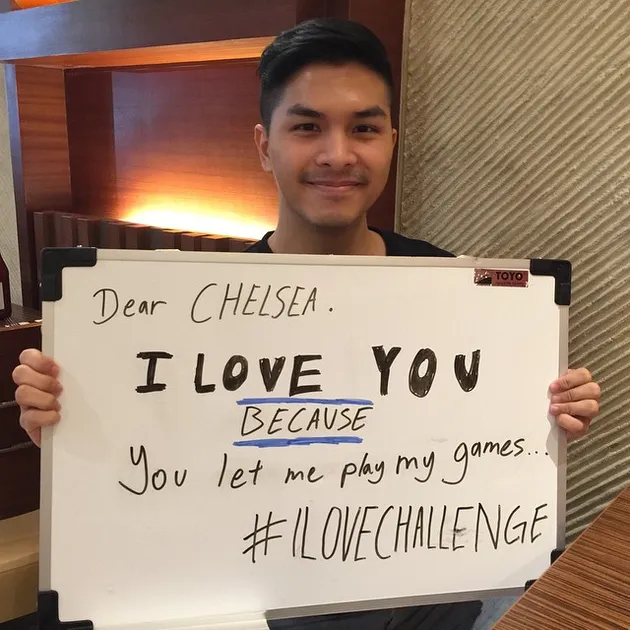 TOYO
Dear CHELSEA.
I LOVE YOU
BECAUSE
You let me play my games...
#ILOVECHALLENGE